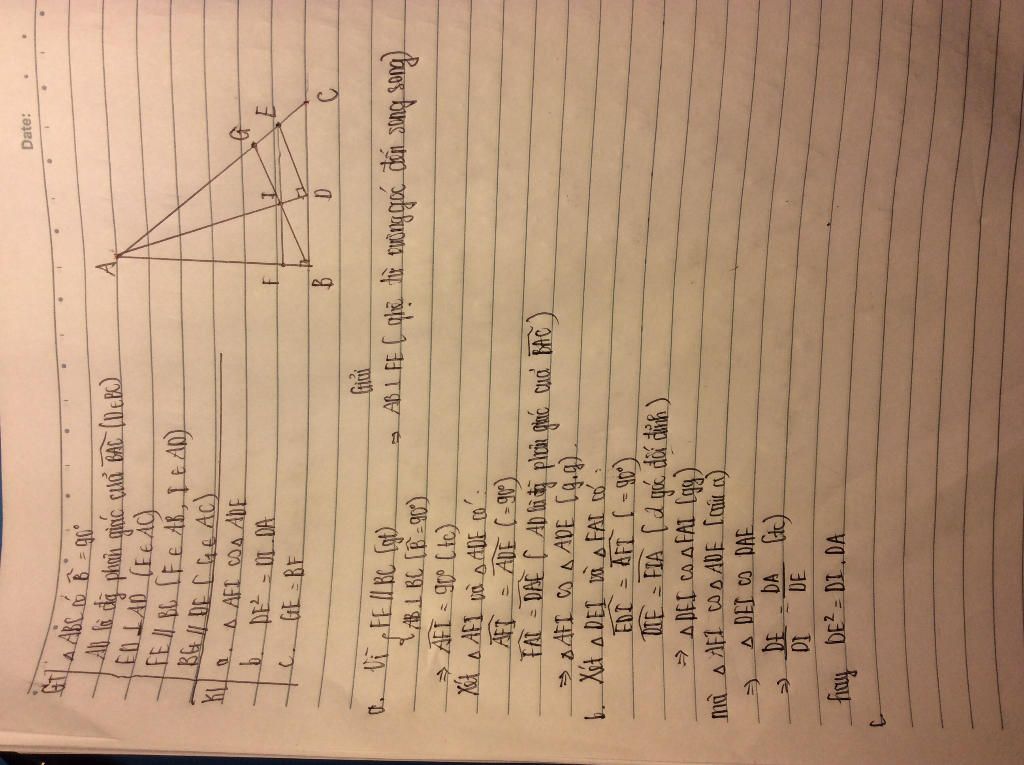 Date:
GT △ABC có B̂ = 90°
AD là đg phân giác của BAC (D ∈ BC)
ED ⊥ AD (E ∈ AC)
FE // BC (F ∈ AB, I ∈ AD)
BG // DE (G ∈ AC)
KL a. △AFI ∽ △ADE
b. DE² = DI.DA
c. GE = BF
A
G
E
C
I
D
F
B
Giải
a. Vì { FE // BC (gt)
{ AB ⊥ BC (B̂ = 90°) ⇒ AB ⊥ FE (qhệ từ vuông góc đến song song)
⇒ AFI = 90° (tc)
Xét △AFI và △ADE có:
AFI = ADE (= 90°)
FAI = DAE (AD là đg phân giác của BAC)
⇒ △AFI ∽ △ADE (g.g)
b. Xét △DEI và △FAI có:
EDI = AFI (= 90°)
DIE = FIA (2 góc đối đỉnh)
⇒ △DEI ∽ △FAI (gg)
mà △AFI ∽ △ADE (câu a)
⇒ △DEI ∽ DAE
⇒ DE/DI = DA/DE (tc)
hay DE² = DI.DA
c